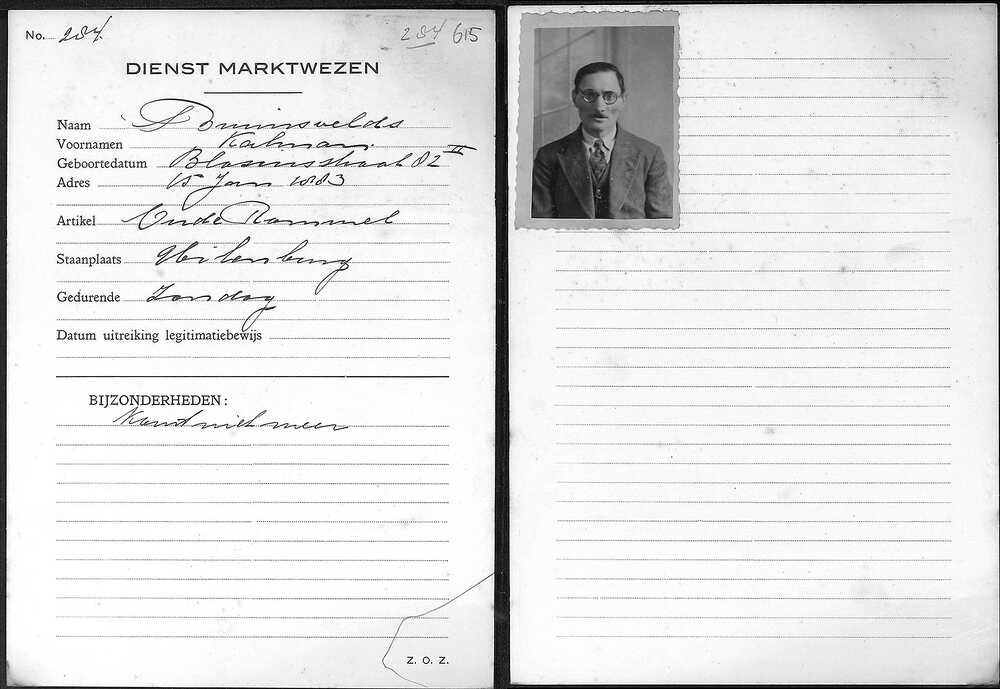 No. 284. 284 615
DIENST MARKTWEZEN
Naam S Bruinsvelds
Voornamen Kalman
Geboortedatum Blasiusstraat 82 II
Adres 15 Jan 1883
Artikel Oude Rommel
Staanplaats Uilenburg
Gedurende Zondag
Datum uitreiking legitimatiebewijs
BIJZONDERHEDEN:
Komt niet meer
Z. O. Z.